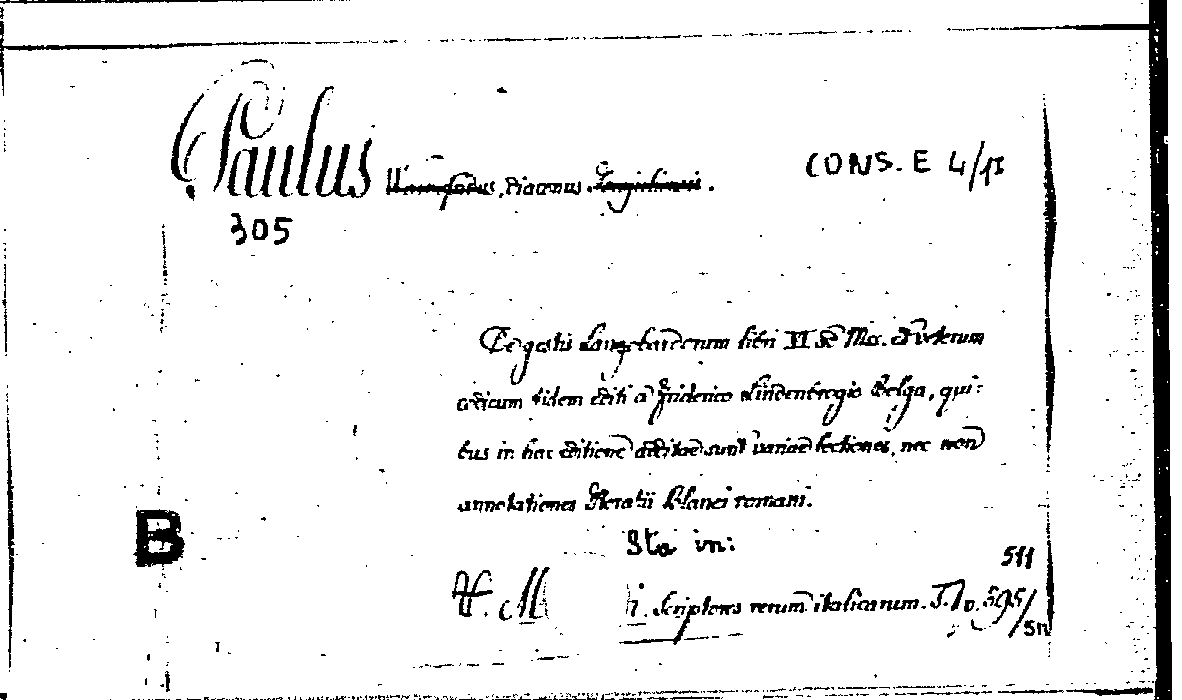 Paulus Warnefridus, diaconus. CONS. E 4/13
305
De gestis Langobardorum libri VI ad Mss. et veterum
codicum fidem editi a Friderico Lindenbrogio Belga, qui:
bus in hac editione additae sunt variae lectiones, nec non
annotationes Horatii Blanci romani.
Sta in:
B
511
M i. Scriptores rerum italicarum. T. I p. 395/511